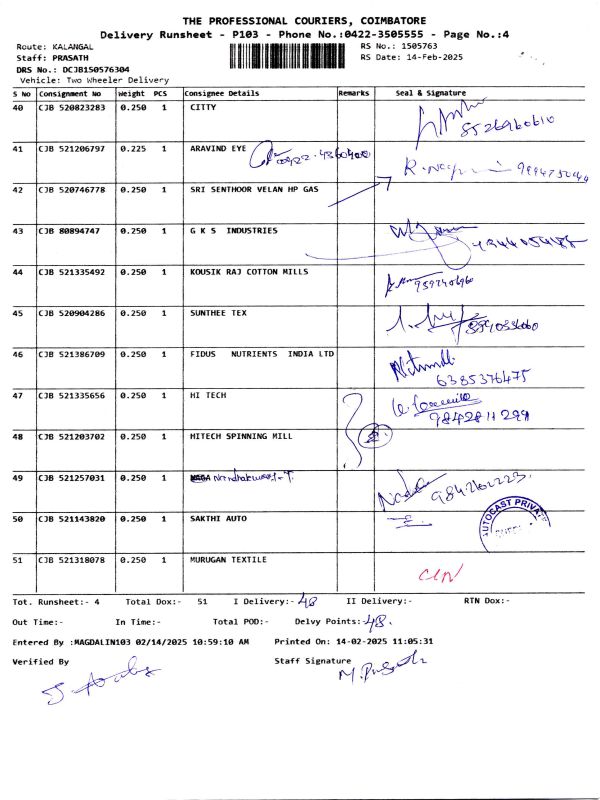 THE PROFESSIONAL COURIERS, COIMBATORE
Delivery Runsheet - P103 - Phone No.:0422-3505555 - Page No.:4
Route: KALANGAL
RS No.: 1505763
Staff: PRASATH
RS Date: 14-Feb-2025
DRS No.: DCJB150576304
Vehicle: Two Wheeler Delivery
S No Consignment No Weight PCS Consignee Details Remarks Seal & Signature
40 CJB 520823283 0.250 1 CITTY
8526960610
41 CJB 521206797 0.225 1 ARAVIND EYE 0422-4360400
42 CJB 520746778 0.250 1 SRI SENTHOOR VELAN HP GAS
43 CJB 80894747 0.250 1 G K S INDUSTRIES
44 CJB 521335492 0.250 1 KOUSIK RAJ COTTON MILLS
45 CJB 520904286 0.250 1 SUNTHEE TEX
46 CJB 521386709 0.250 1 FIDUS NUTRIENTS INDIA LTD
6385376475
47 CJB 521335656 0.250 1 HI TECH
9842811299
48 CJB 521203702 0.250 1 HITECH SPINNING MILL
49 CJB 521257031 0.250 1
9842602223
50 CJB 521143820 0.250 1 SAKTHI AUTO
AUTOCAST PRIVATE
51 CJB 521318078 0.250 1 MURUGAN TEXTILE
Tot. Runsheet:- 4 Total Dox:- 51 I Delivery:- 48 II Delivery:- RTN Dox:-
Out Time:- In Time:- Total POD:- Delvy Points:- 48.
Entered By :MAGDALIN103 02/14/2025 10:59:10 AM Printed On: 14-02-2025 11:05:31
Verified By Staff Signature